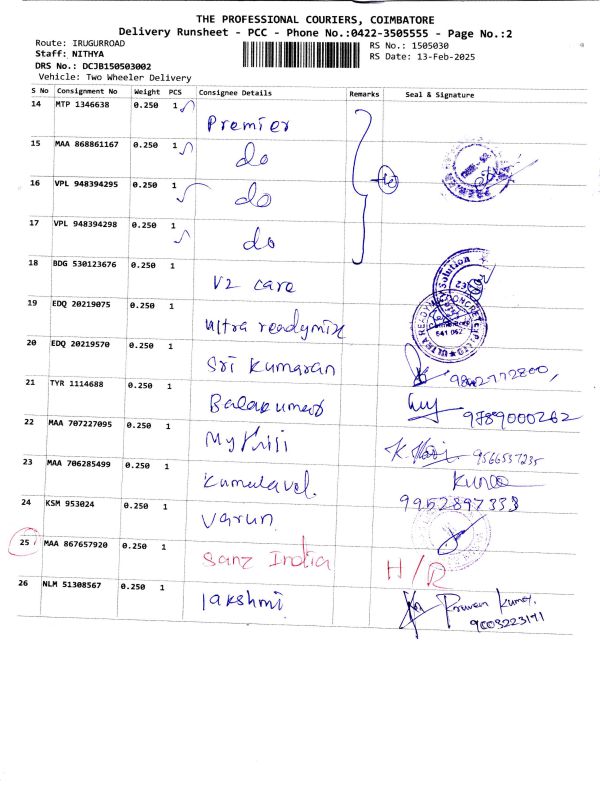 THE PROFESSIONAL COURIERS, COIMBATORE
Delivery Runsheet - PCC - Phone No.:0422-3505555 - Page No.:2
Route: IRUGURROAD
RS No.: 1505030
Staff: NITHYA
RS Date: 13-Feb-2025
DRS No.: DCJB150503002
Vehicle: Two Wheeler Delivery
S No Consignment No Weight PCS Consignee Details Remarks Seal & Signature
14 MTP 1346638 0.250 1 Premier
15 MAA 868861167 0.250 1 do
16 VPL 948394295 0.250 1 do
17 VPL 948394298 0.250 1 do
18 BDG 530123676 0.250 1 V2 care
19 EDQ 20219075 0.250 1 Ultra readymix
20 EDQ 20219570 0.250 1 Sri Kumaran 9842772800,
21 TYR 1114688 0.250 1 Balakumar 9789000262
22 MAA 707227095 0.250 1 K. Hari 9566537235
23 MAA 706285499 0.250 1 Kumulavel. 9952897333
24 KSM 953024 0.250 1 Varun
25 MAA 867657920 0.250 1 Sanz India H/R
26 NLM 51308567 0.250 1 lakshmi Praveen Kumar. 9003223171